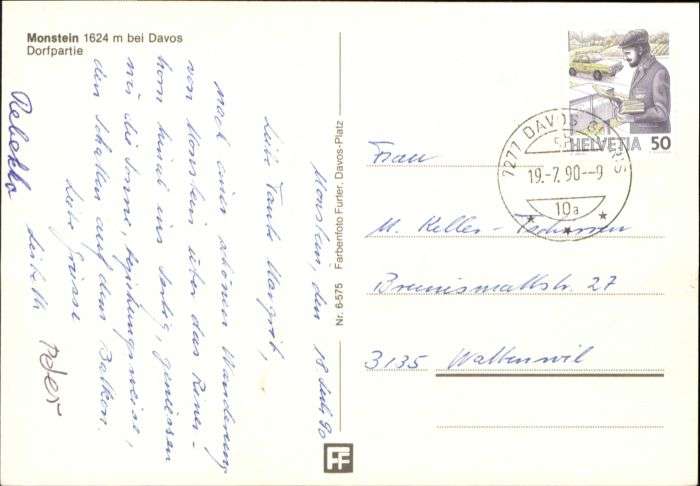 Monstein 1624 m bei Davos
Dorfpartie
Monstein, den 18. Juli 90
Liebe Tante Margrit,
Nach einer schönen Wanderung
von Monstein über das Riner-
horn hinab ins Sertig, geniessen
wir die Sonne, beziehungsweise,
den Schatten auf dem Balkon.
Liebe Grüsse
Lisbeth Peter
Rebekka
Nr. 6-575 Farbenfoto Furter, Davos-Platz
FF
HELVETIA 50
7277 DAVOS
19.-7.90--9
10a
Frau
M. Keller-
Breunismattstr. 27
3135 Wattenwil